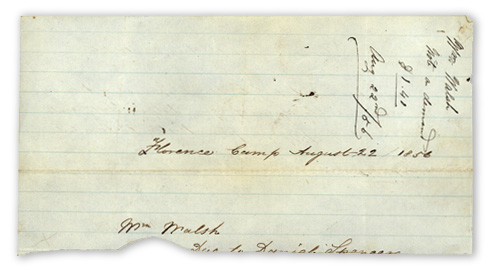 Wm Walsh
Note a demand
$1.40
Aug 22nd /56
Florence Camp August 22 1856
Wm Walsh
Due to Daniel Spencer